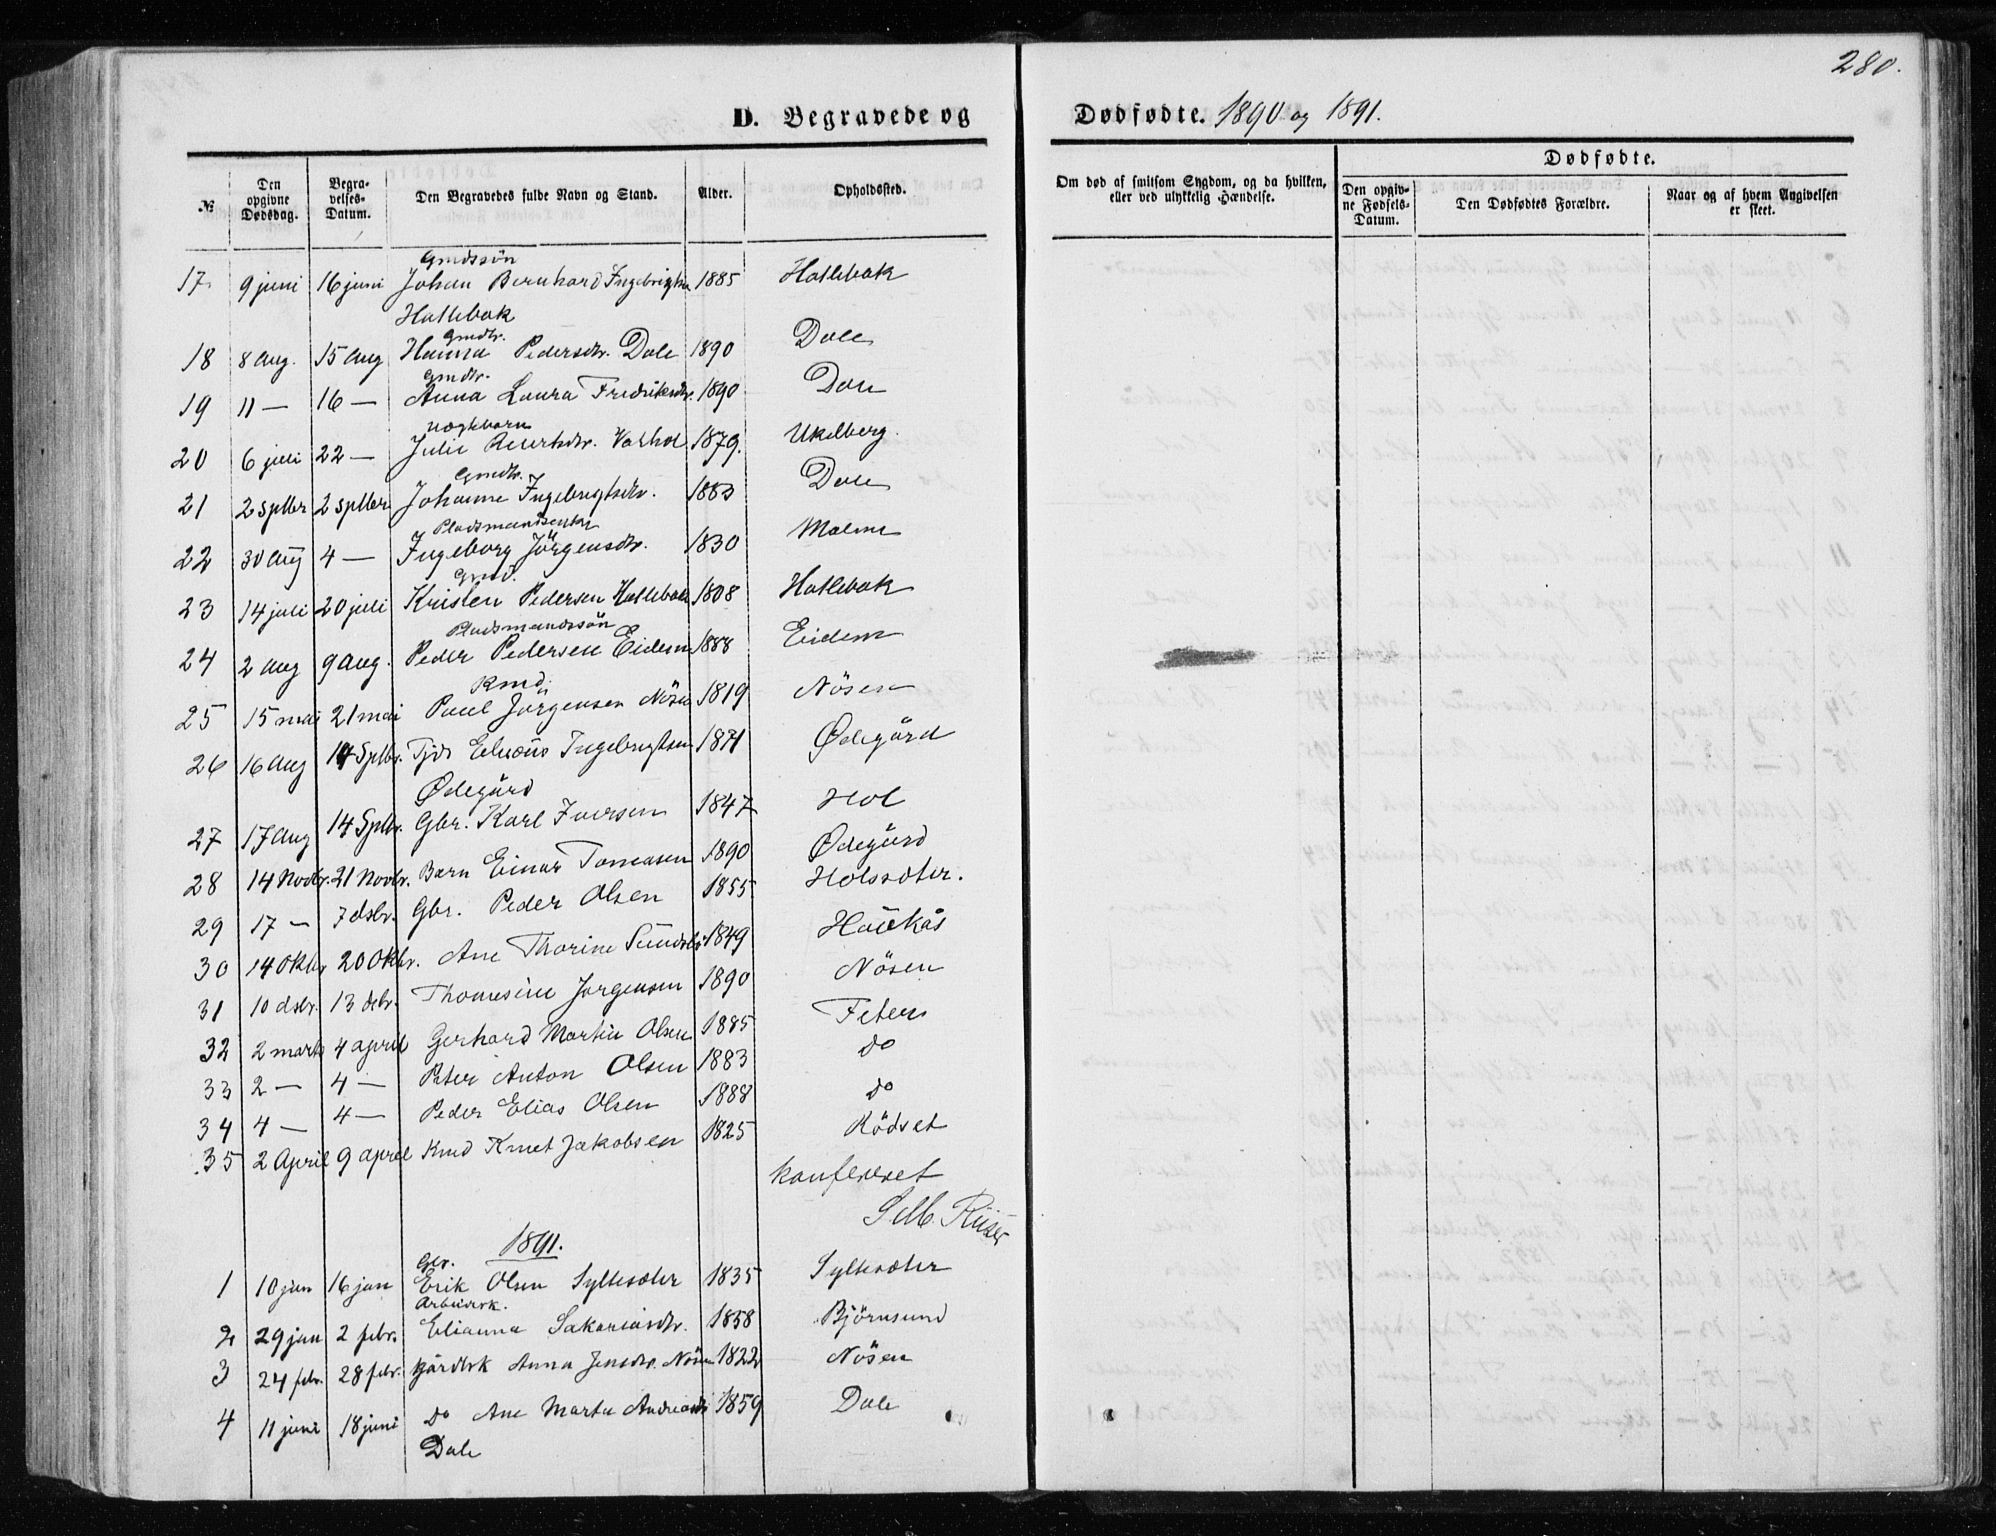 280.
D. Begravede og Dødfødte. 1890 og 1891.
№ Den opgivne Dødsdag. Begravelses-Datum. Den Begravedes fulde Navn og Stand. Alder. Opholdssted. Om død af smitsom Sygdom, og da hvilken, eller ved ulykkelig Hændelse. Dødfødte. Den opgivne Fødsels-Datum. Den Dødfødtes Forældre. Naar og af hvem Angivelsen er skeet.
Gmdssön
17 9 juni 16 juni Johan Bernhard 1885 Hatlebak
Hatlebak
Gmdtr.
18 8 aug. 15 aug Hanna Pedersdtr. Dale 1890 Dale
Gmdtr.
19 11 — 16 — Anna Laura Fredriksdtr. 1890 Dale
20 6 juli 22 — Julie 1879. Ukelberg.
Gmdtr.
21 2 Sptbr 2 sptbr Johanne Ingebrigtsdtr. 1883 Dale
Pladsmandsenke
22 30 aug 4 — Ingeborg Jörgensdtr. 1830 Malme
Gmd.
23 14 juli 20 juli Kristen Pedersen Hatlebak 1808 Hatlebak
Pladsmandssön
24 2 aug 9 aug. Peder Pedersen Eidem 1888 Eidem
Kmd.
25 15 mai 21 mai Paul Jörgensen Nösen 1819 Nösen
26 16 aug 14 Sptbr. Tjdr Ingebrigtsen 1871 Ødegård
Ødegård
27 17 aug 14 Sptbr. Gbr. Karl Iversen 1847 Hol
28 14 Novbr. 21 Novbr. Barn Einar Tomasen 1890 Ødegård
29 17 — 7 dsbr. Gbr. Peder Olsen 1855 Holssæter.
30 14 Oktbr 20 Oktbr. Ane Thorine 1849 Haukås
31 10 dsbr. 13 dsbr. Thomesine Jorgensen 1890 Nösen
32 2 marts 4 april Gerhard Martin Olsen 1885
33 2 — 4 — Peter Anton Olsen 1883 do
34 4 — 4 — Peder Elias Olsen 1888 do
35 2 April 9 april Kmd Knut Jakobsen 1825 Rödset
konfereret
1891.
Gbr.
1 10 jan 16 jan Erik Olsen Syltesæter 1835 Syltesæter
Arbeidsk.
2 29 jan 2 febr. Elianna Sakariasdtr. 1858 Björnsund
3 24 febr. 28 febr. Anna Jensdtr. Nösen 1822 Nösen
4 11 juni 18 juni do Ane Marta 1859 Dale
Dale